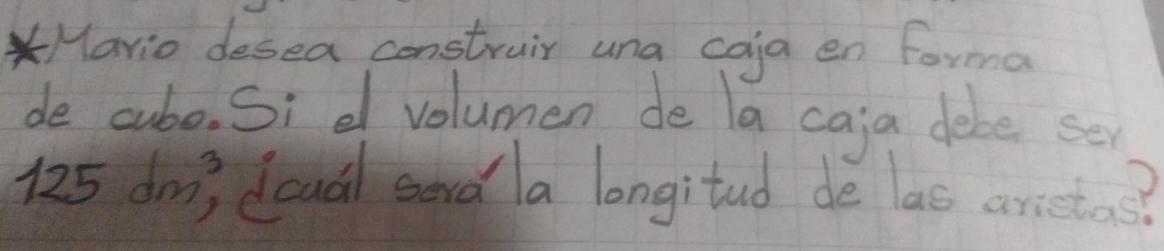 *Mario desea construir una caja en forma
de cubo. Si el volumen de la caja debe ser
125 dm³, ¿cuál será la longitud de las aristas?